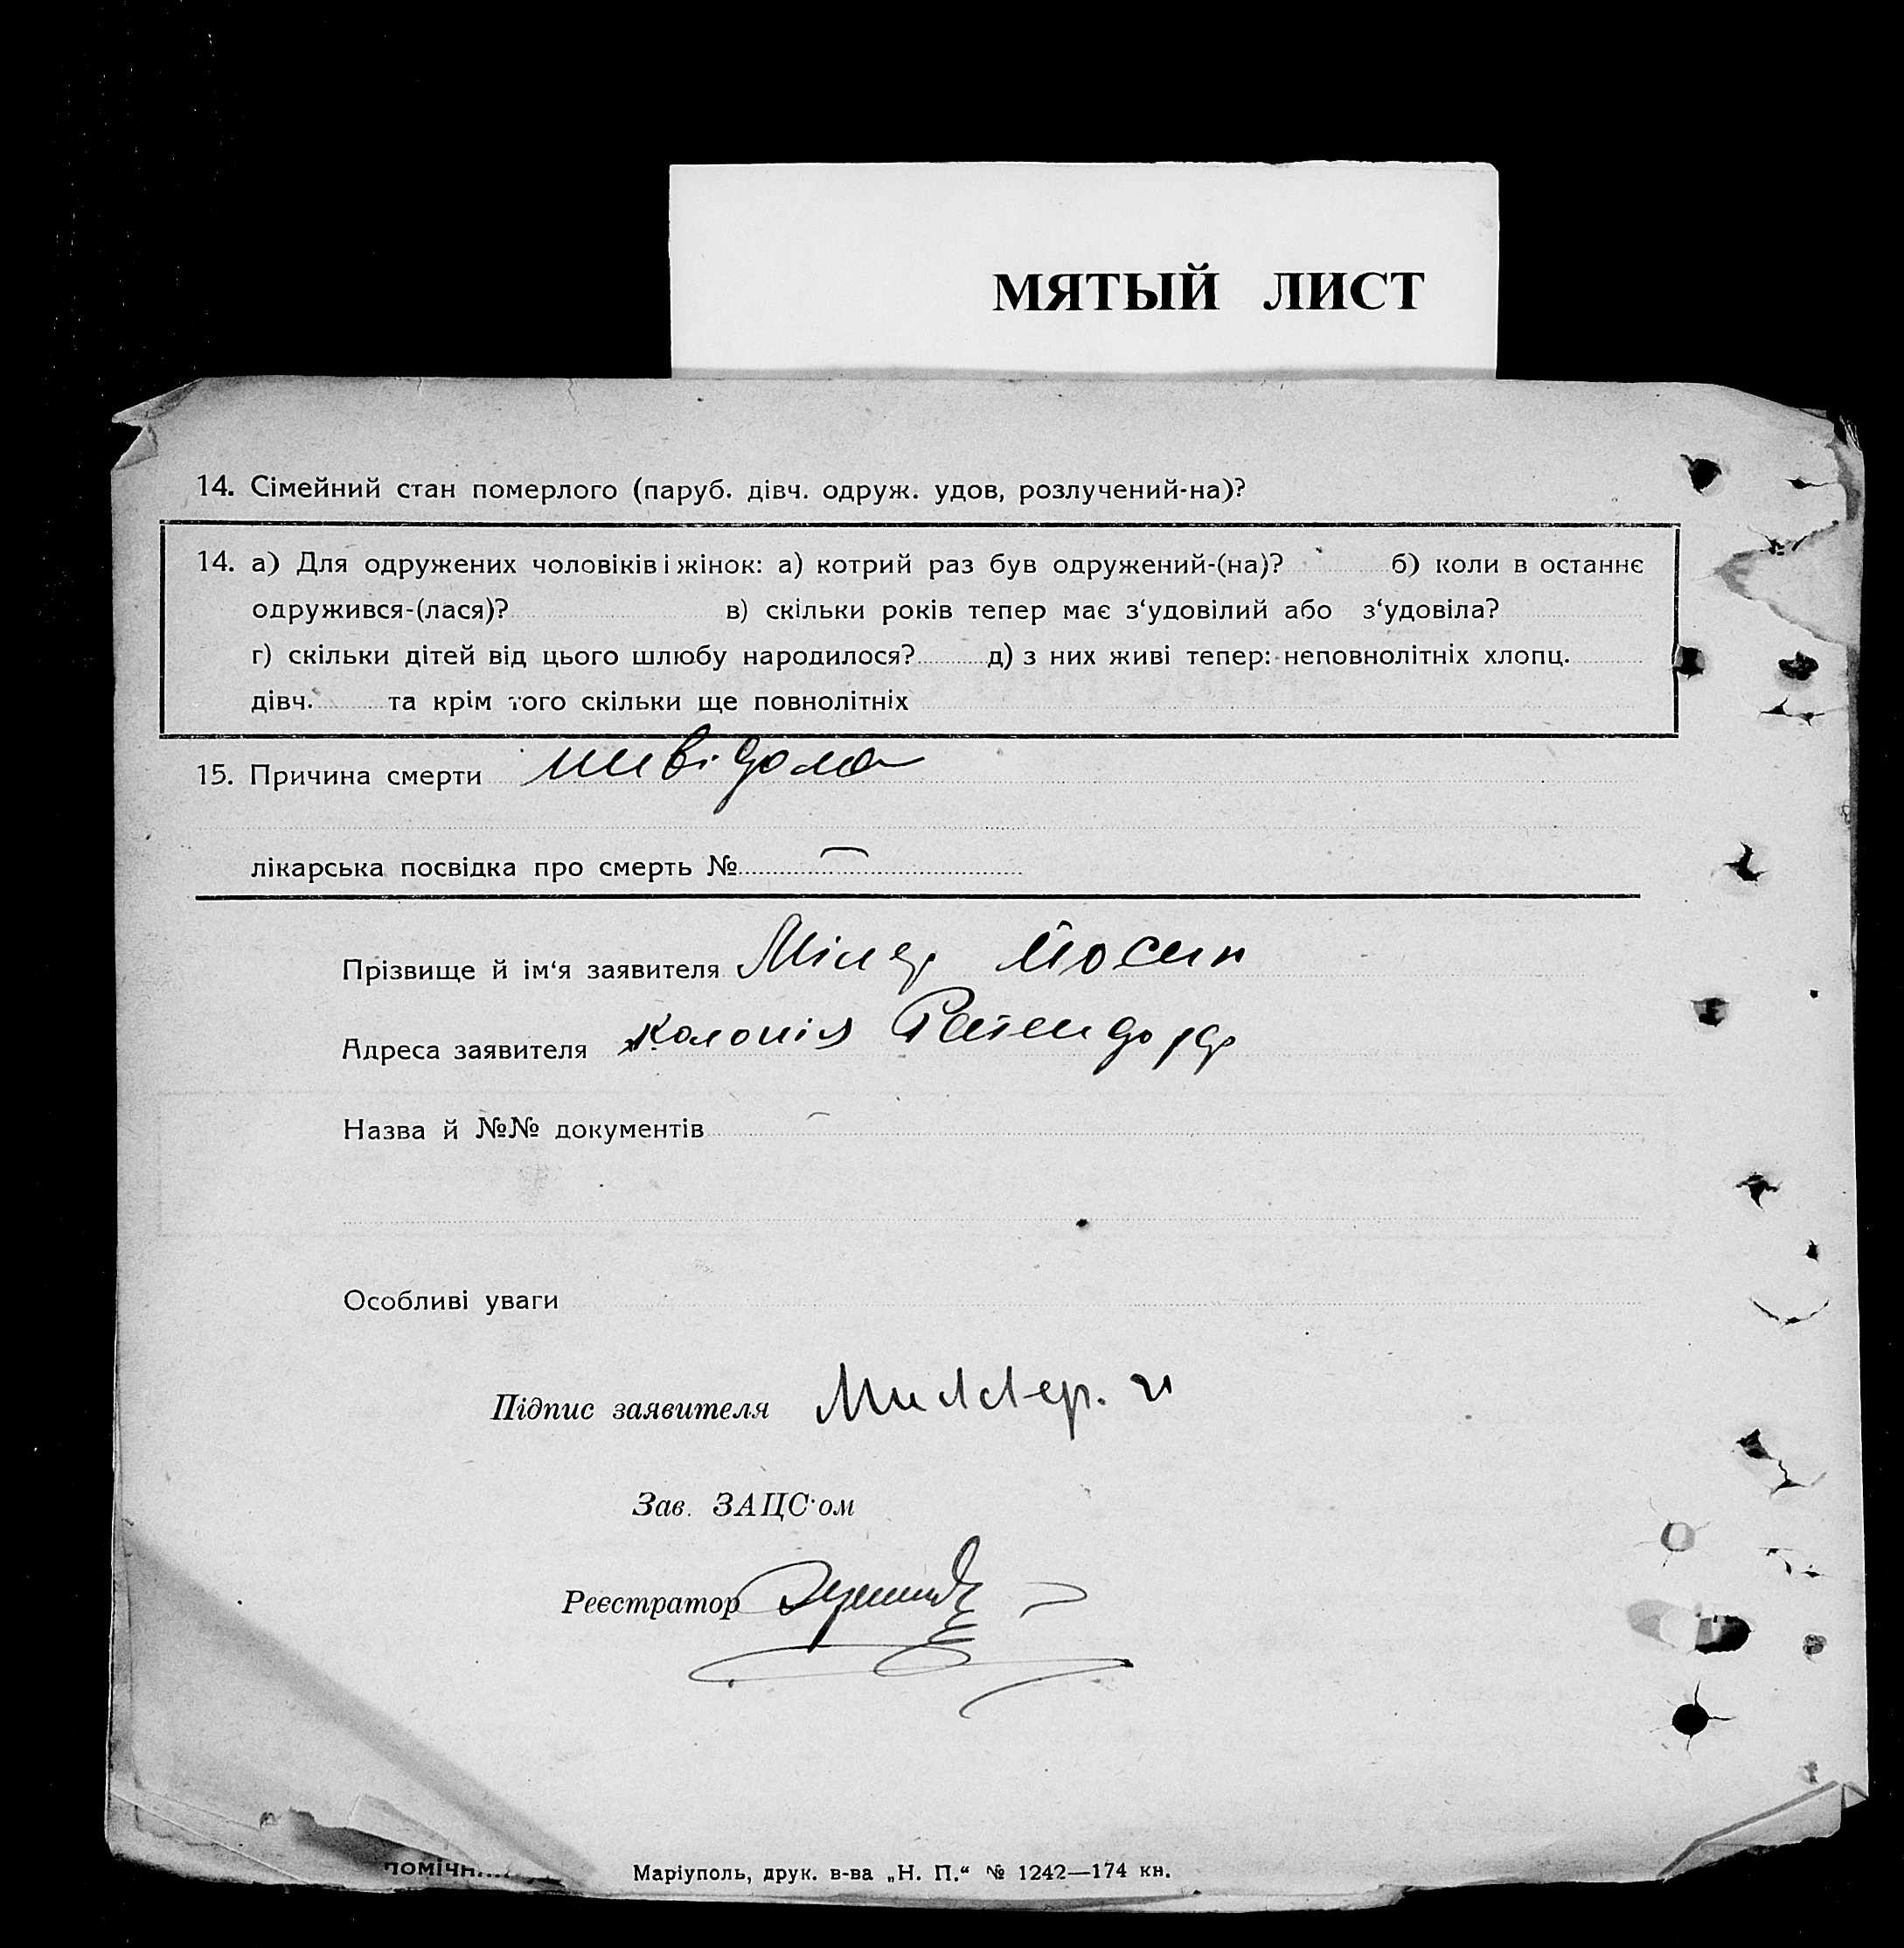 МЯТЫЙ ЛИСТ
14. Сімейний стан померлого (паруб. дівч. одруж. удов, розлучений-на)?
14. а) Для одружених чоловіків і жінок: а) котрий раз був одружений-(на)? б) коли в останнє
одружився-(лася)? в) скільки років тепер має з‘удовілий або з‘удовіла?
г) скільки дітей від цього шлюбу народилося? д) з них живі тепер: неповнолітніх хлопц.
дівч. та крім того скільки ще повнолітніх
15. Причина смерти невідома
лікарська посвідка про смерть № —
Прізвище й ім‘я заявителя Мілер Йосип
Адреса заявителя колонія
Назва й №№ документів
Особливі уваги
Підпис заявителя Миллер. И
Зав. ЗАЦС‘ом
Реєстратор
Маріуполь, друк. в-ва „Н. П.“ № 1242—174 кн.